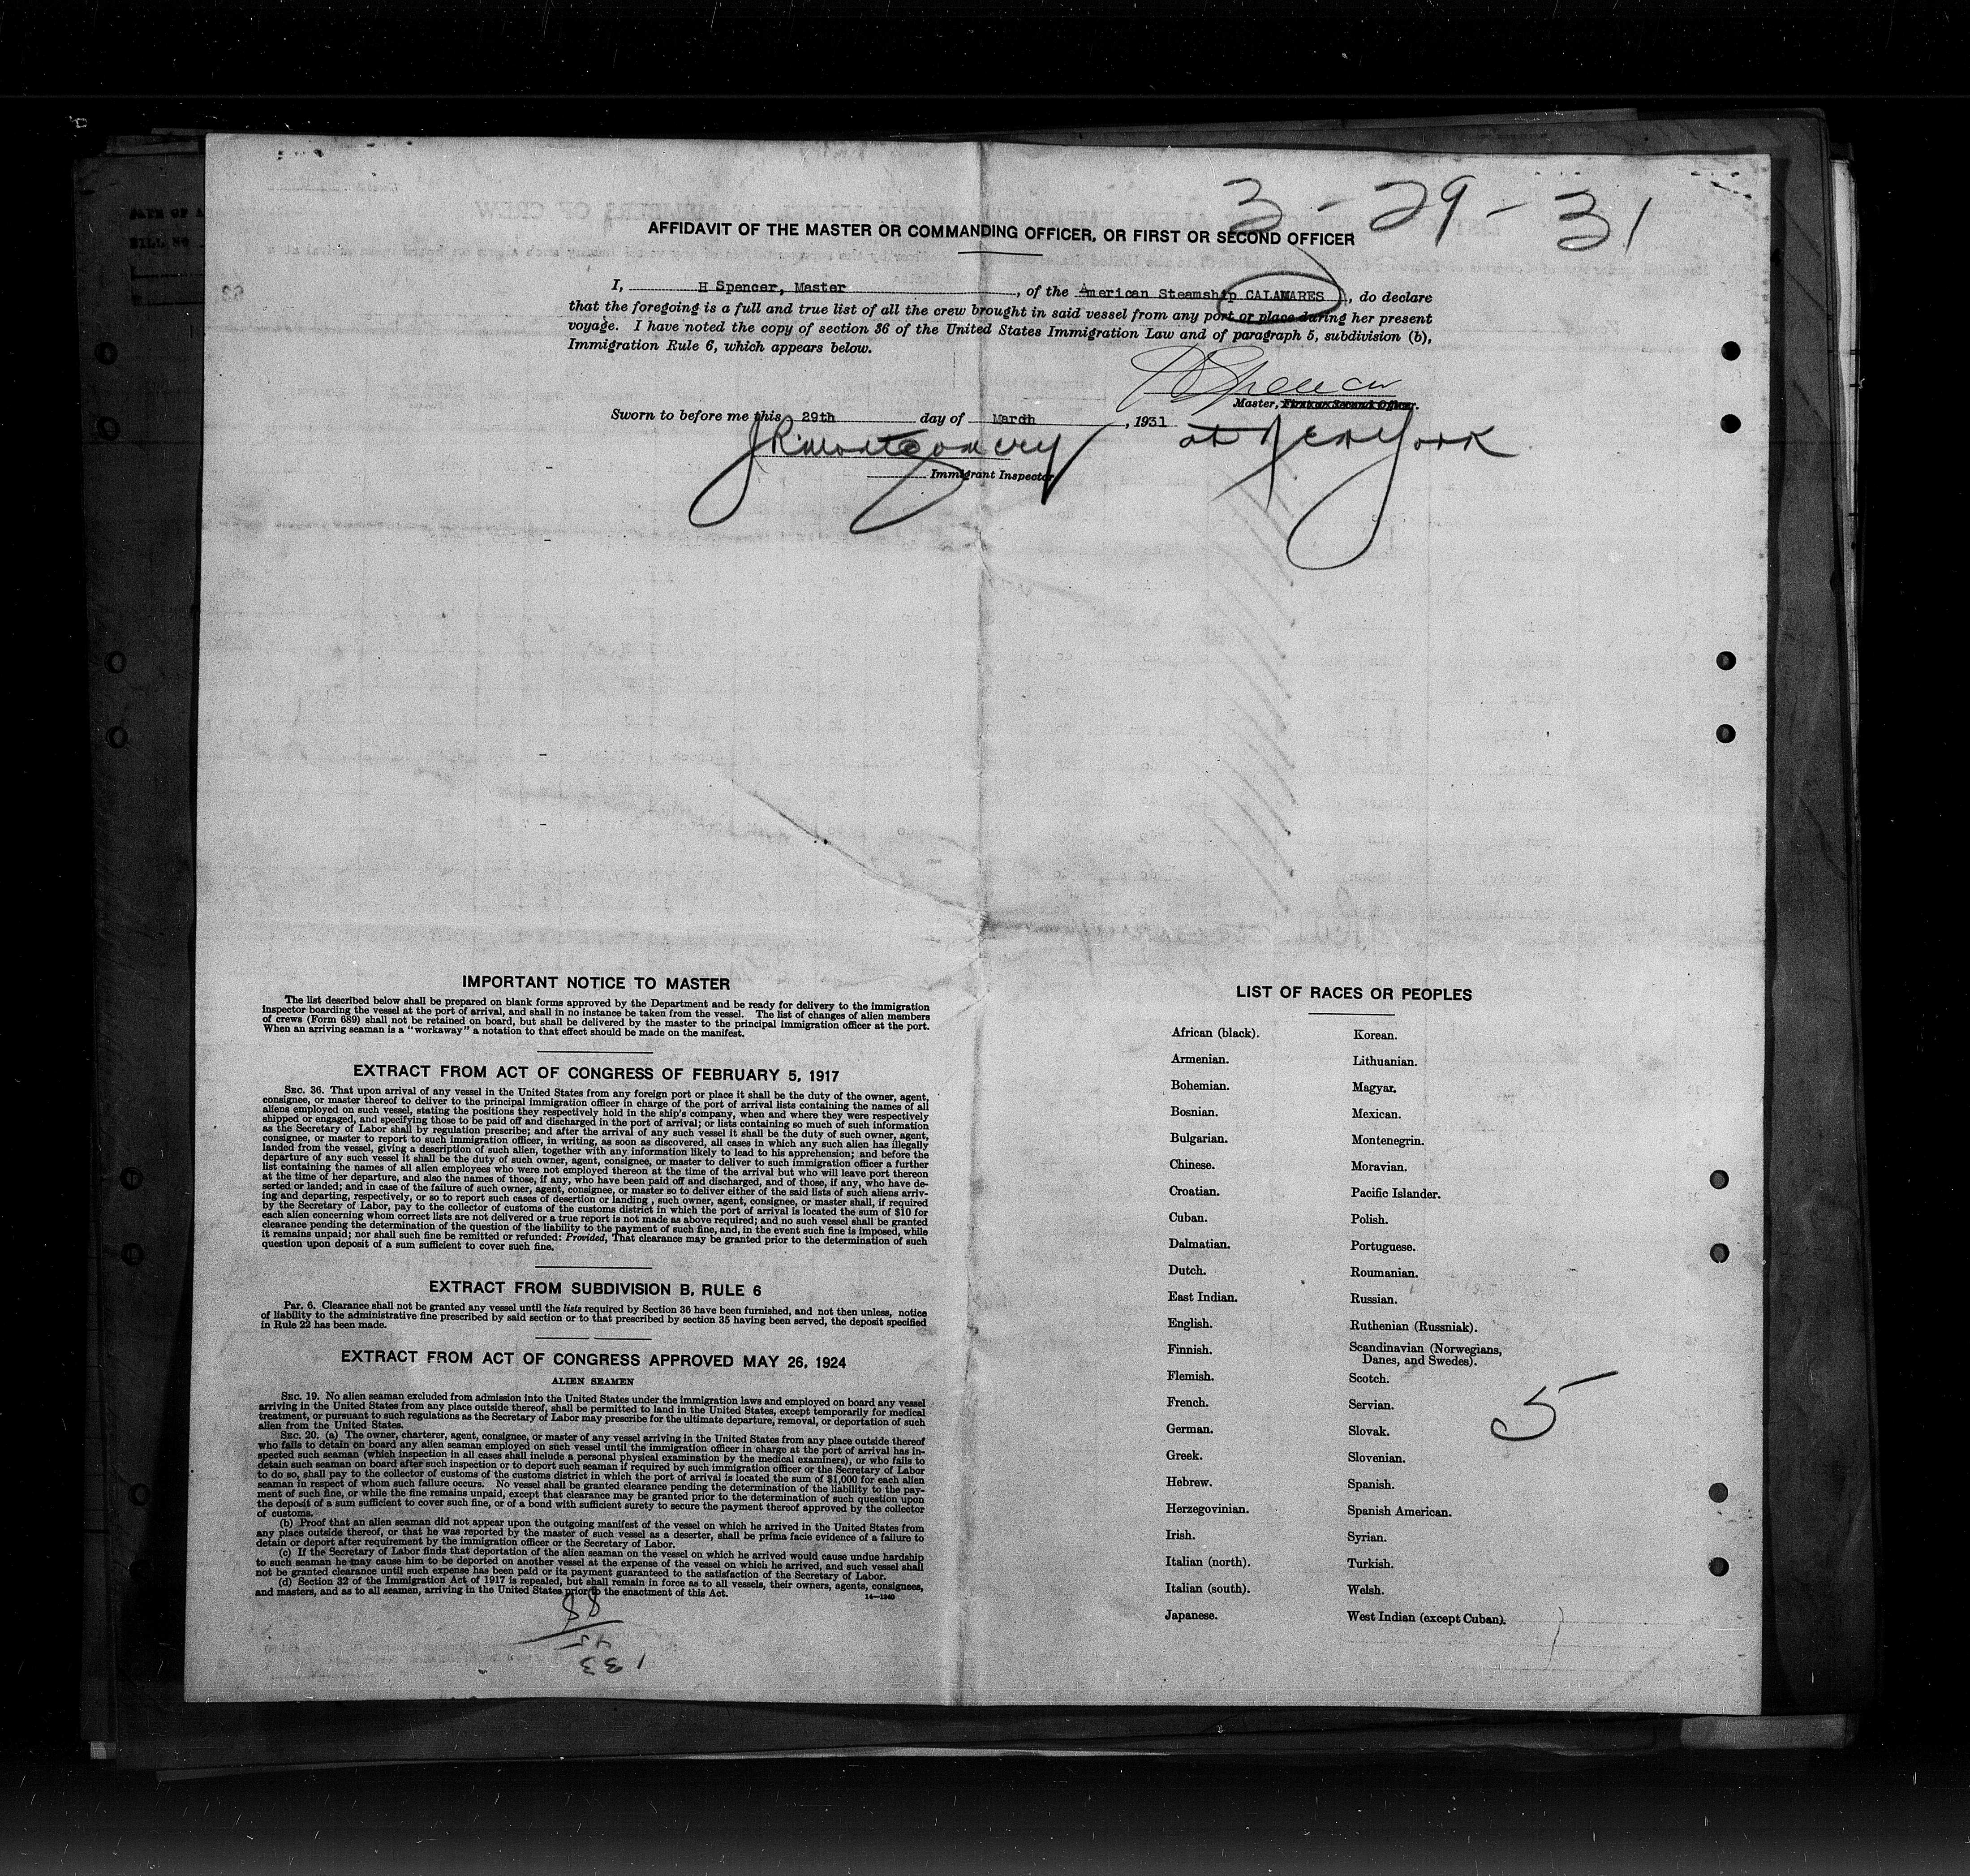 3 - 29 - 31
AFFIDAVIT OF THE MASTER OR COMMANDING OFFICER, OR FIRST OR SECOND OFFICER
I, H Spencer, Master, of the American Steamship CALAMARES, do declare
that the foregoing is a full and true list of all the crew brought in said vessel from any port or place during her present
voyage. I have noted the copy of section 36 of the United States Immigration Law and of paragraph 5, subdivision (b),
Immigration Rule 6, which appears below.
H Spencer
Master, First or Second Officer.
Sworn to before me this 29th day of March, 1931 at New York
JR Montgomery
Immigrant Inspector
IMPORTANT NOTICE TO MASTER
The list described below shall be prepared on blank forms approved by the Department and be ready for delivery to the immigration
inspector boarding the vessel at the port of arrival, and shall in no instance be taken from the vessel. The list of changes of alien members
of crews (Form 689) shall not be retained on board, but shall be delivered by the master to the principal immigration officer at the port.
When an arriving seaman is a "workaway" a notation to that effect should be made on the manifest.
EXTRACT FROM ACT OF CONGRESS OF FEBRUARY 5, 1917
SEC. 36. That upon arrival of any vessel in the United States from any foreign port or place it shall be the duty of the owner, agent,
consignee, or master thereof to deliver to the principal immigration officer in charge of the port of arrival lists containing the names of all
aliens employed on such vessel, stating the positions they respectively hold in the ship's company, when and where they were respectively
shipped or engaged, and specifying those to be paid off and discharged in the port of arrival; or lists containing so much of such information
as the Secretary of Labor shall by regulation prescribe; and after the arrival of any such vessel it shall be the duty of such owner, agent,
consignee, or master to report to such immigration officer, in writing, as soon as discovered, all cases in which any such alien has illegally
landed from the vessel, giving a description of such alien, together with any information likely to lead to his apprehension; and before the
departure of any such vessel it shall be the duty of such owner, agent, consignee, or master to deliver to such immigration officer a further
list containing the names of all alien employees who were not employed thereon at the time of the arrival but who will leave port thereon
at the time of her departure, and also the names of those, if any, who have been paid off and discharged, and of those, if any, who have de-
serted or landed; and in case of the failure of such owner, agent, consignee, or master so to deliver either of the said lists of such aliens arriv-
ing and departing, respectively, or so to report such cases of desertion or landing, such owner, agent, consignee, or master shall, if required
by the Secretary of Labor, pay to the collector of customs of the customs district in which the port of arrival is located the sum of $10 for
each alien concerning whom correct lists are not delivered or a true report is not made as above required; and no such vessel shall be granted
clearance pending the determination of the question of the liability to the payment of such fine, and, in the event such fine is imposed, while
it remains unpaid; nor shall such fine be remitted or refunded: Provided, That clearance may be granted prior to the determination of such
question upon deposit of a sum sufficient to cover such fine.
EXTRACT FROM SUBDIVISION B, RULE 6
Par. 6. Clearance shall not be granted any vessel until the lists required by Section 36 have been furnished, and not then unless, notice
of liability to the administrative fine prescribed by said section or to that prescribed by section 35 having been served, the deposit specified
in Rule 22 has been made.
EXTRACT FROM ACT OF CONGRESS APPROVED MAY 26, 1924
ALIEN SEAMEN
SEC. 19. No alien seaman excluded from admission into the United States under the immigration laws and employed on board any vessel
arriving in the United States from any place outside thereof, shall be permitted to land in the United States, except temporarily for medical
treatment, or pursuant to such regulations as the Secretary of Labor may prescribe for the ultimate departure, removal, or deportation of such
alien from the United States.
SEC. 20. (a) The owner, charterer, agent, consignee, or master of any vessel arriving in the United States from any place outside thereof
who fails to detain on board any alien seaman employed on such vessel until the immigration officer in charge at the port of arrival has in-
spected such seaman (which inspection in all cases shall include a personal physical examination by the medical examiners), or who fails to
detain such seaman on board after such inspection or to deport such seaman if required by such immigration officer or the Secretary of Labor
to do so, shall pay to the collector of customs of the customs district in which the port of arrival is located the sum of $1,000 for each alien
seaman in respect of whom such failure occurs. No vessel shall be granted clearance pending the determination of the liability to the pay-
ment of such fine, or while the fine remains unpaid, except that clearance may be granted prior to the determination of such question upon
the deposit of a sum sufficient to cover such fine, or of a bond with sufficient surety to secure the payment thereof approved by the collector
of customs.
(b) Proof that an alien seaman did not appear upon the outgoing manifest of the vessel on which he arrived in the United States from
any place outside thereof, or that he was reported by the master of such vessel as a deserter, shall be prima facie evidence of a failure to
detain or deport after requirement by the immigration officer or the Secretary of Labor.
(c) If the Secretary of Labor finds that deportation of the alien seaman on the vessel on which he arrived would cause undue hardship
to such seaman he may cause him to be deported on another vessel at the expense of the vessel on which he arrived, and such vessel shall
not be granted clearance until such expense has been paid or its payment guaranteed to the satisfaction of the Secretary of Labor.
(d) Section 32 of the Immigration Act of 1917 is repealed, but shall remain in force as to all vessels, their owners, agents, consignees,
and masters, and as to all seamen, arriving in the United States prior to the enactment of this Act.
14—1240
88
45
133
LIST OF RACES OR PEOPLES
African (black).
Armenian.
Bohemian.
Bosnian.
Bulgarian.
Chinese.
Croatian.
Cuban.
Dalmatian.
Dutch.
East Indian.
English.
Finnish.
Flemish.
French.
German.
Greek.
Hebrew.
Herzegovinian.
Irish.
Italian (north).
Italian (south).
Japanese.
Korean.
Lithuanian.
Magyar.
Mexican.
Montenegrin.
Moravian.
Pacific Islander.
Polish.
Portuguese.
Roumanian.
Russian.
Ruthenian (Russniak).
Scandinavian (Norwegians,
Danes, and Swedes).
Scotch.
Servian.
Slovak.
Slovenian.
Spanish.
Spanish American.
Syrian.
Turkish.
Welsh.
West Indian (except Cuban).
5